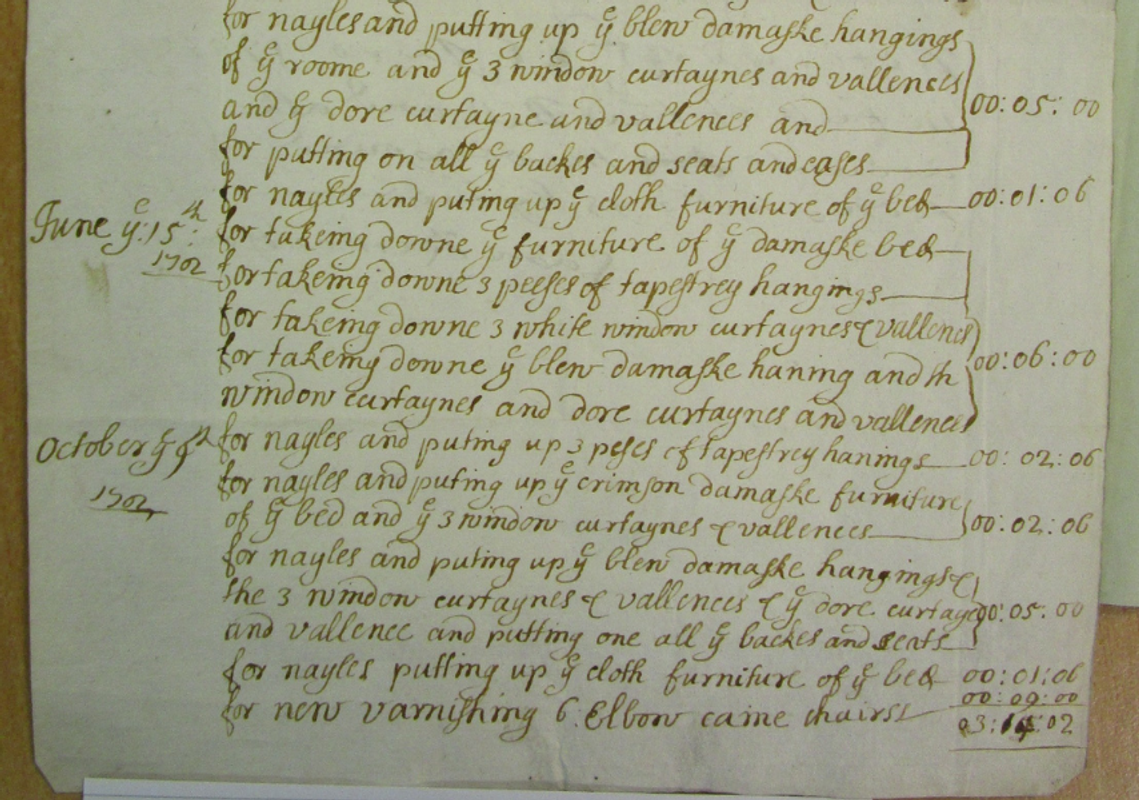 for nayles and putting up yᵉ blew damaske hangings
of yᵉ roome and yᵉ 3 window curtaynes and vallences
and yᵉ dore curtayne and vallences and 00: 05: 00
for putting on all yᵉ backes and seats and cases
for nayles and puting up yᵉ cloth furniture of yᵉ bed 00: 01: 06
June yᵉ: 15ᵗʰ: for takeing downe yᵉ furniture of yᵉ damaske bed
1702 for takeing downe 3 peeses of tapestrey hangings
for takeing downe 3 white window curtaynes & vallences
for takeing downe yᵉ blew damaske haning and th 00: 06: 00
window curtaynes and dore curtaynes and vallences
October yᵉ 9ᵗʰ for nayles and puting up 3 peses of tapestrey hanings 00: 02: 06
1702 for nayles and puting up yᵉ crimson damaske furniture
of yᵉ bed and yᵉ 3 window curtaynes & vallences 00: 02: 06
for nayles and puting up yᵉ blew damaske hangings &
the 3 window curtaynes & vallences & yᵉ dore curtayne 00: 05: 00
and vallence and putting one all yᵉ backes and seats
for nayles putting up yᵉ cloth furniture of yᵉ bed 00: 01: 06
for new varnishing 6 Elbow caine chairss 00: 09: 00
03: 14: 02